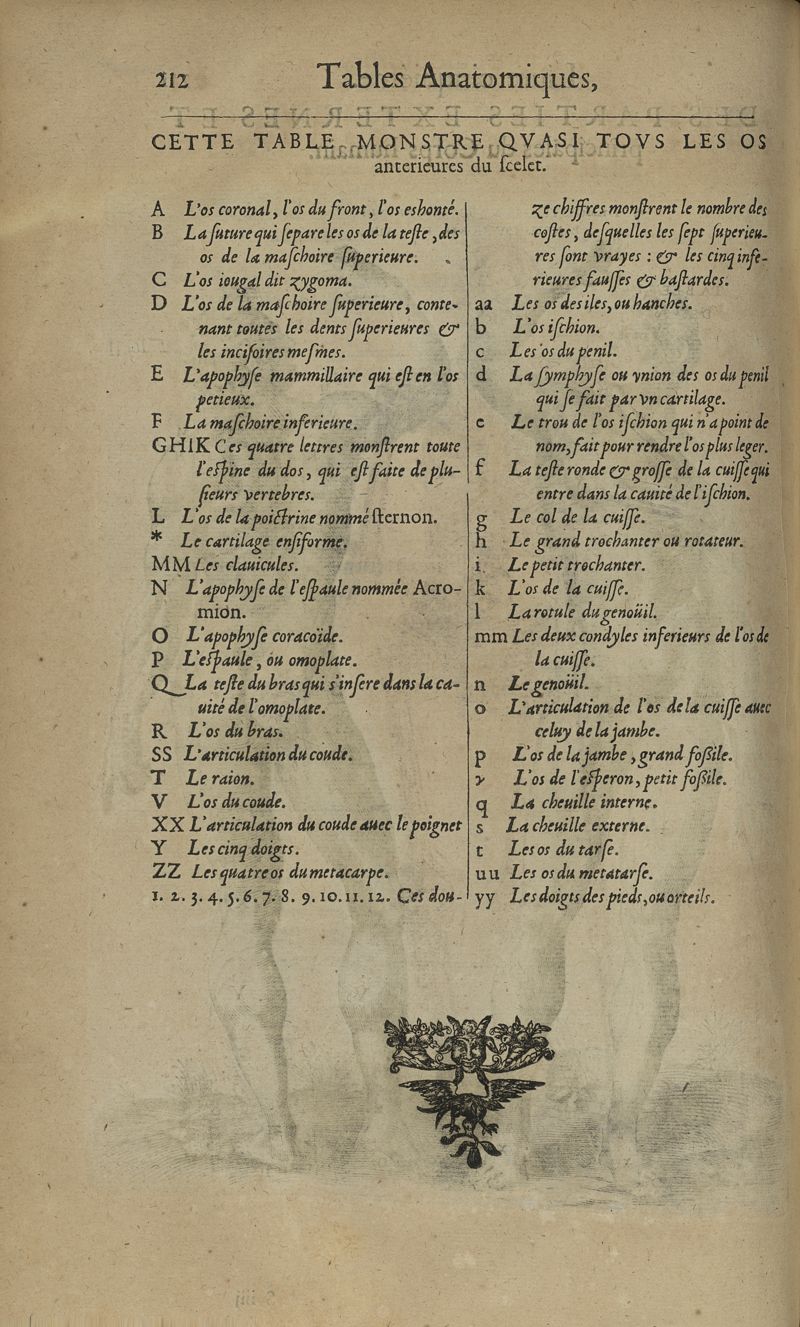 212 Tables Anatomiques,
CETTE TABLE MONSTRE QVASI TOVS LES OS
anterieures du ſcelet.
A L'os coronal, l'os du front, l'os eshonté.
B La ſuture qui ſepare les os de la teſte, des
os de la maſchoire ſuperieure.
C L'os iougal dit zygoma.
D L'os de la maſchoire ſuperieure, conte-
nant toutes les dents ſuperieures &
les inciſoires meſmes.
E L'apophyſe mammillaire qui eſt en l'os
petieux.
F La maſchoire inferieure.
GHIK Ces quatre lettres monſtrent toute
l'eſpine du dos, qui eſt faite de plu-
ſieurs vertebres.
L L'os de la poictrine nommé ſternon.
* Le cartilage enſiforme.
MM Les clauicules.
N L'apophyſe de l'eſpaule nommée Acro-
mion.
O L'apophyſe coracoïde.
P L'eſpaule, ou omoplate.
Q La teſte du bras qui s'inſere dans la ca-
uité de l'omoplate.
R L'os du bras.
SS L'articulation du coude.
T Le raion.
V L'os du coude.
XX L'articulation du coude auec le poignet
Y Les cinq doigts.
ZZ Les quatre os du metacarpe.
1. 2. 3. 4. 5. 6. 7. 8. 9. 10. 11. 12. Ces dou-
ze chiffres monſtrent le nombre des
coſtes, deſquelles les ſept ſuperieu-
res ſont vrayes : & les cinq infe-
rieures fauſſes & baſtardes.
aa Les os des iles, ou hanches.
b L'os iſchion.
c Les os du penil.
d La ſymphyſe ou vnion des os du penil
qui ſe fait par vn cartilage.
e Le trou de l'os iſchion qui n'a point de
nom, fait pour rendre l'os plus leger.
f La teſte ronde & groſſe de la cuiſſe qui
entre dans la cauité de l'iſchion.
g Le col de la cuiſſe.
h Le grand trochanter ou rotateur.
i Le petit trochanter.
k L'os de la cuiſſe.
l La rotule du genoüil.
mm Les deux condyles inferieurs de l'os de
la cuiſſe.
n Le genoüil.
o L'articulation de l'os de la cuiſſe auec
celuy de la jambe.
p L'os de la jambe, grand foſſile.
r L'os de l'eſperon, petit foſſile.
q La cheuille interne.
s La cheuille externe.
t Les os du tarſe.
uu Les os du metatarſe.
yy Les doigts des pieds, ou orteils.